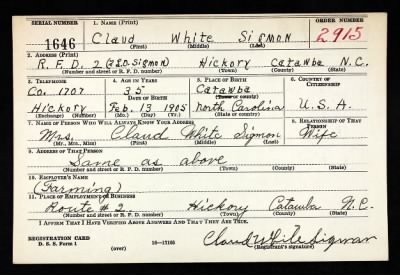 SERIAL NUMBER 1. NAME (Print) ORDER NUMBER
1646 Claud White Sigmon 2915
(First) (Middle) (Last)
2. ADDRESS (Print)
R.F.D. 2 Hickory Catawba N.C.
(Number and street or R. F. D. number) (Town) (County) (State)
3. TELEPHONE 4. AGE IN YEARS 5. PLACE OF BIRTH 6. COUNTRY OF CITIZENSHIP
Co. 1707 35 Catawba
DATE OF BIRTH (Town or county)
Hickory Feb. 13 1905 North Carolina U.S.A.
(Exchange) (Number) (Mo.) (Day) (Yr.) (State or country)
7. NAME OF PERSON WHO WILL ALWAYS KNOW YOUR ADDRESS 8. RELATIONSHIP OF THAT PERSON
Mrs. Claud White Sigmon Wife
(Mr., Mrs., Miss) (First) (Middle) (Last)
9. ADDRESS OF THAT PERSON
Same as above
(Number and street or R. F. D. number) (Town) (County) (State)
10. EMPLOYER'S NAME
(Farming)
11. PLACE OF EMPLOYMENT OR BUSINESS
Route # 2. Hickory Catawba N.C.
(Number and street or R. F. D. number) (Town) (County) (State)
I AFFIRM THAT I HAVE VERIFIED ABOVE ANSWERS AND THAT THEY ARE TRUE.
REGISTRATION CARD
D. S. S. Form 1 (over) 16—17105 Claud White Sigmon
(Registrant's signature)